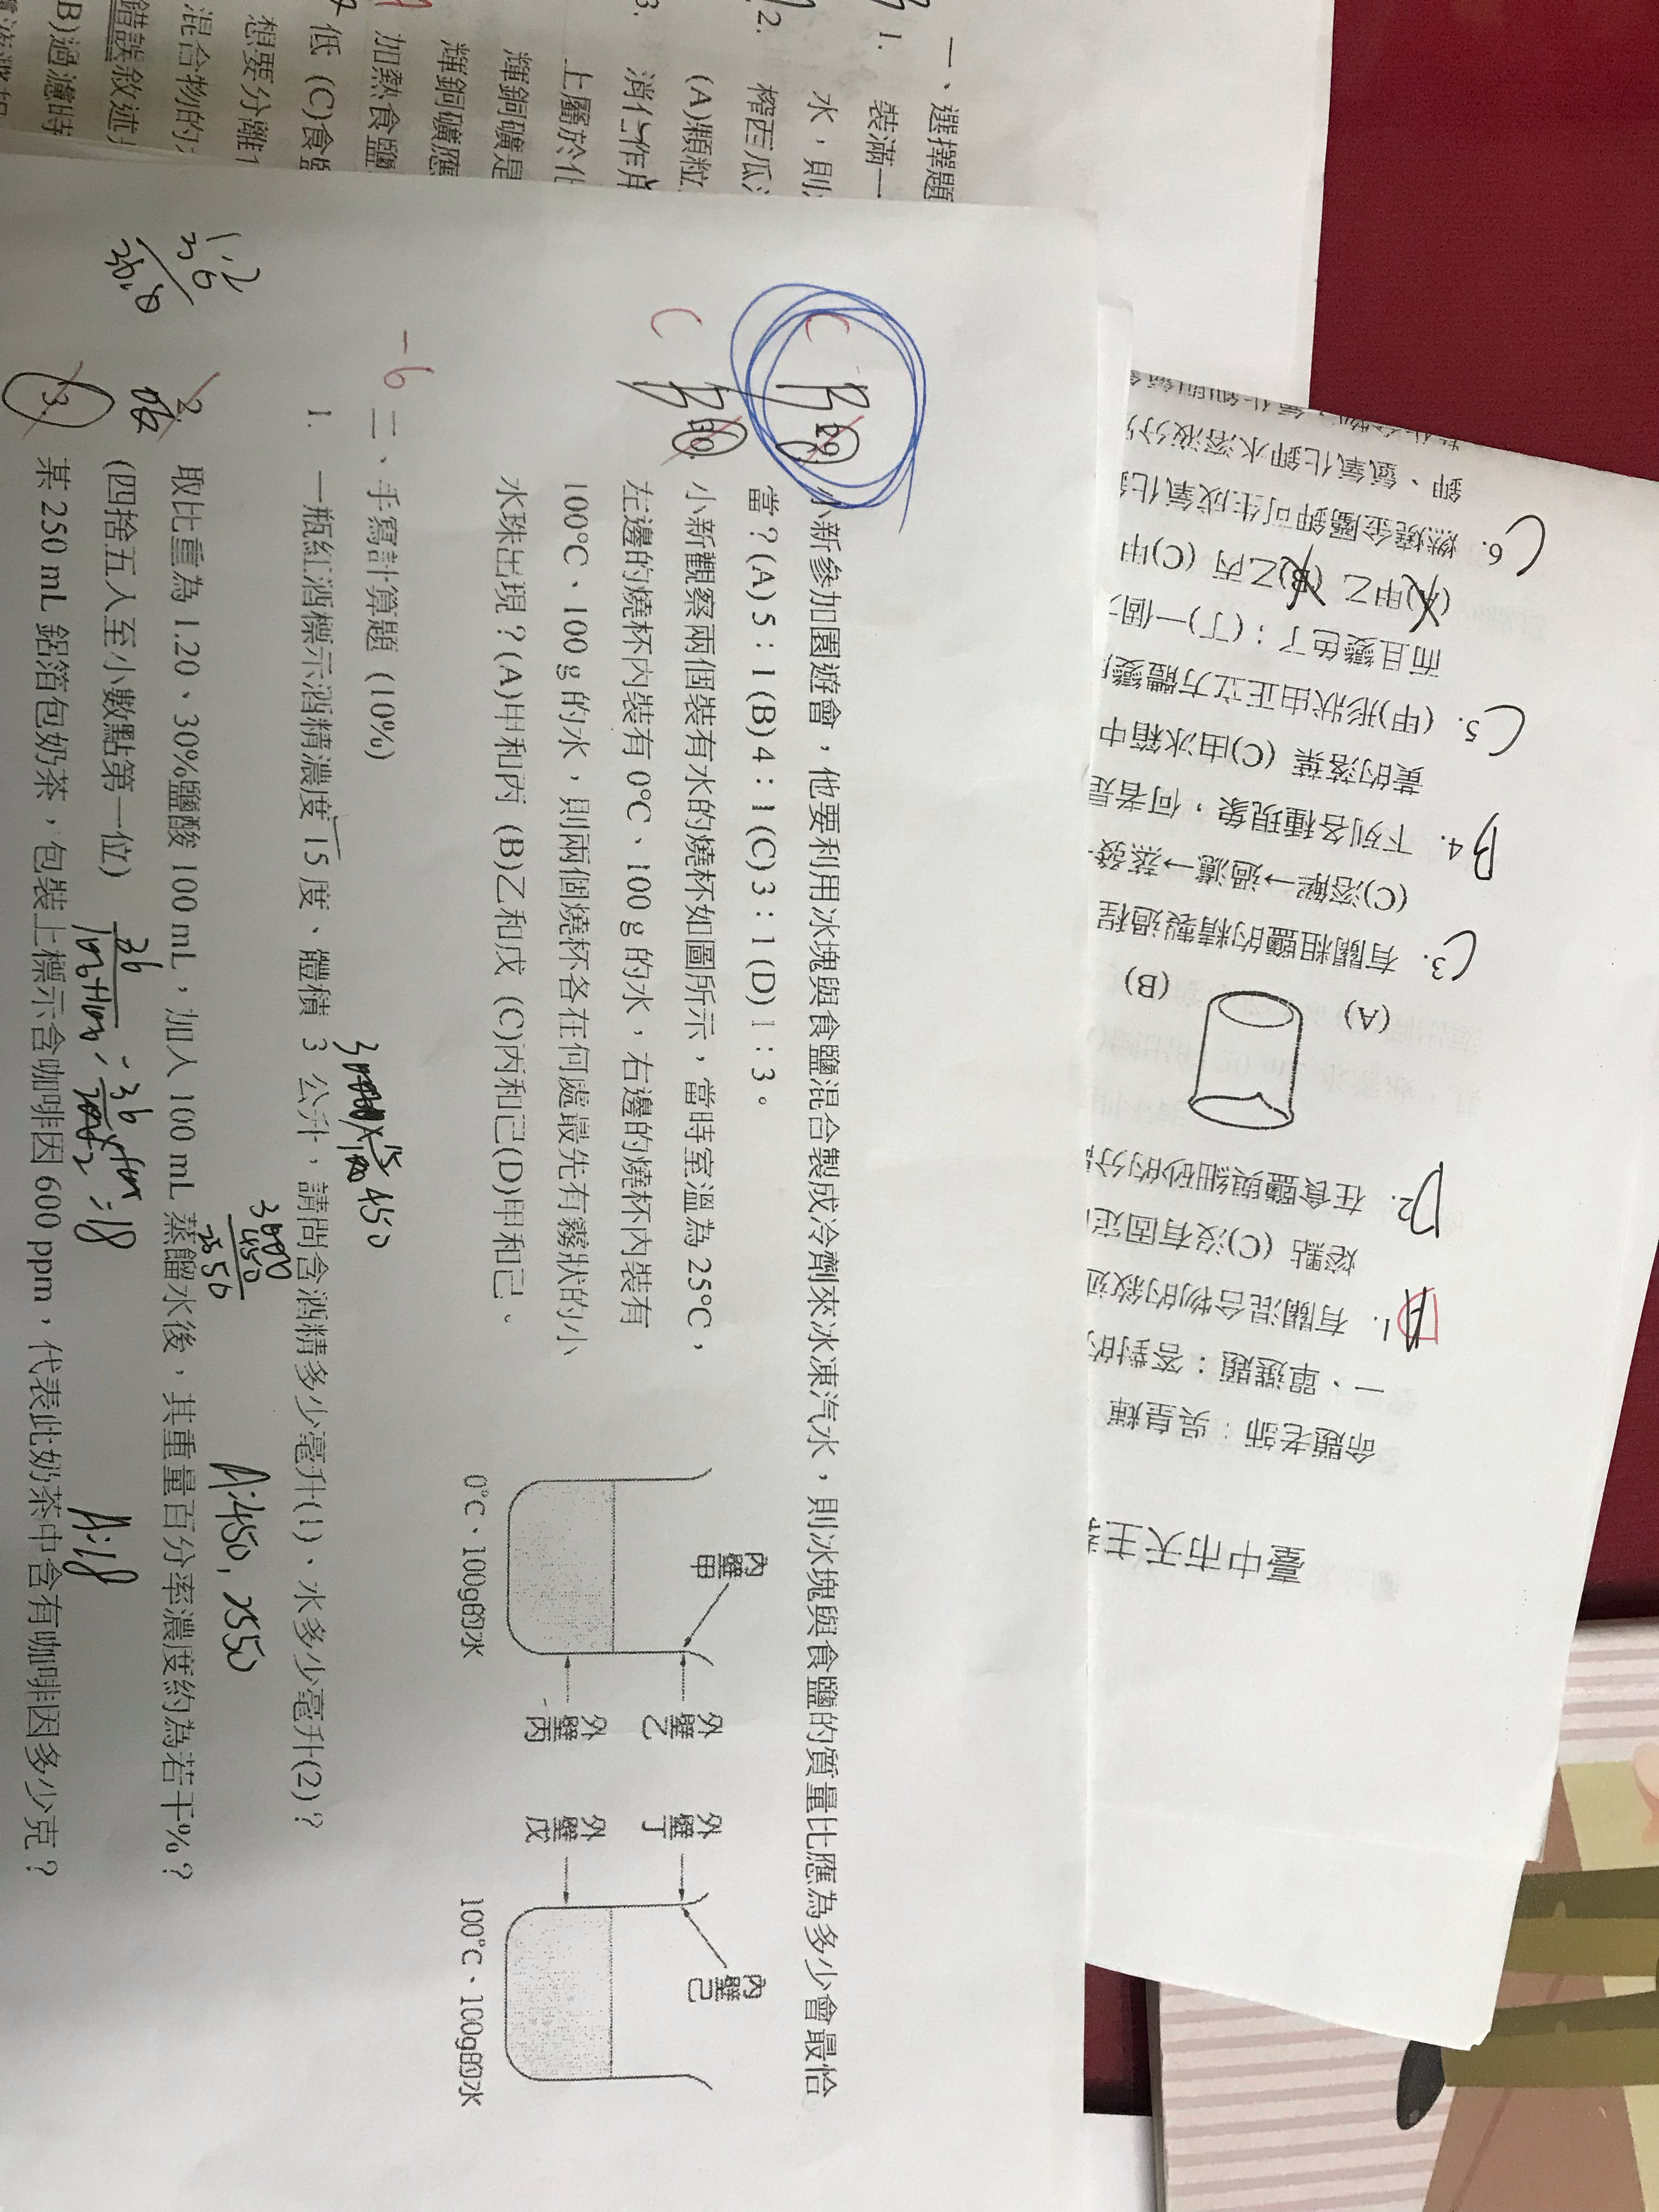 一、選擇題
1.
裝滿一
水，則
2.
榨西瓜
(A)顆粒
3.
消化作用
上屬於化
輝銅礦是
輝銅礦應
加熱食鹽
低 (C)食鹽
想要分離
混合物的
錯誤敘述
B)過濾時
C
B
29.
小新參加園遊會，他要利用冰塊與食鹽混合製成冷劑來冰凍汽水，則冰塊與食鹽的質量比應為多少會最恰
當？(A) 5：1 (B) 4：1 (C) 3：1 (D) 1：3。
C
B
30.
小新觀察兩個裝有水的燒杯如圖所示，當時室溫為 25℃，
左邊的燒杯內裝有 0℃、100 g 的水，右邊的燒杯內裝有
100℃、100 g 的水，則兩個燒杯各在何處最先有霧狀的小
水珠出現？(A)甲和丙 (B)乙和戊 (C)丙和己(D)甲和己、
內壁甲
外壁乙
外壁丙
0℃、100g的水
外壁丁
外壁戊
內壁己
100℃、100g的水
-6
二、手寫計算題 (10%)
1. 一瓶紅酒標示酒精濃度 15 度、體積 3 公升，請問含酒精多少毫升(1)、水多少毫升(2)？
450
3000
450
A:450, 2550
2.
取比重為 1.20、30%鹽酸 100 mL，加入 100 mL 蒸餾水後，其重量百分率濃度約為若干%？
(四捨五入至小數點第一位)
1.2
36
A:18
3.
某 250 mL 鋁箔包奶茶，包裝上標示含咖啡因 600 ppm，代表此奶茶中含有咖啡因多少克？
臺中市天主
命題老師：吳皇輝
一、單選題：答對
1. 有關混合物的敘述
熔點 (C)沒有固定
D 2. 在食鹽與細砂的分
(A)
(B)
C 3. 有關粗鹽的精製過程
(C)溶解→過濾→蒸發
B 4. 下列各種現象，何者是
黃的落葉 (C)由冰箱中
C 5. (甲)形狀由正立方體變
而且變色了；(丁)一個
(A)甲乙 (B)乙丙 (C)甲
C 6. 燃燒金屬鉀可生成氧化
鉀、氫氧化鉀水溶液分